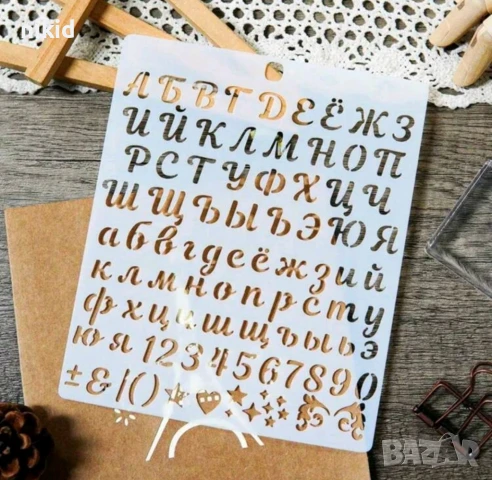 nikid
АБВГДЕЁЖЗ
ИЙКЛМНОП
РСТУФХЦЧ
ШЩЪЫЬЭЮЯ
абвгдеёжзий
клмнопрсту
фхцчшщъыьэ
юя1234567890
±&/()
BAZAR